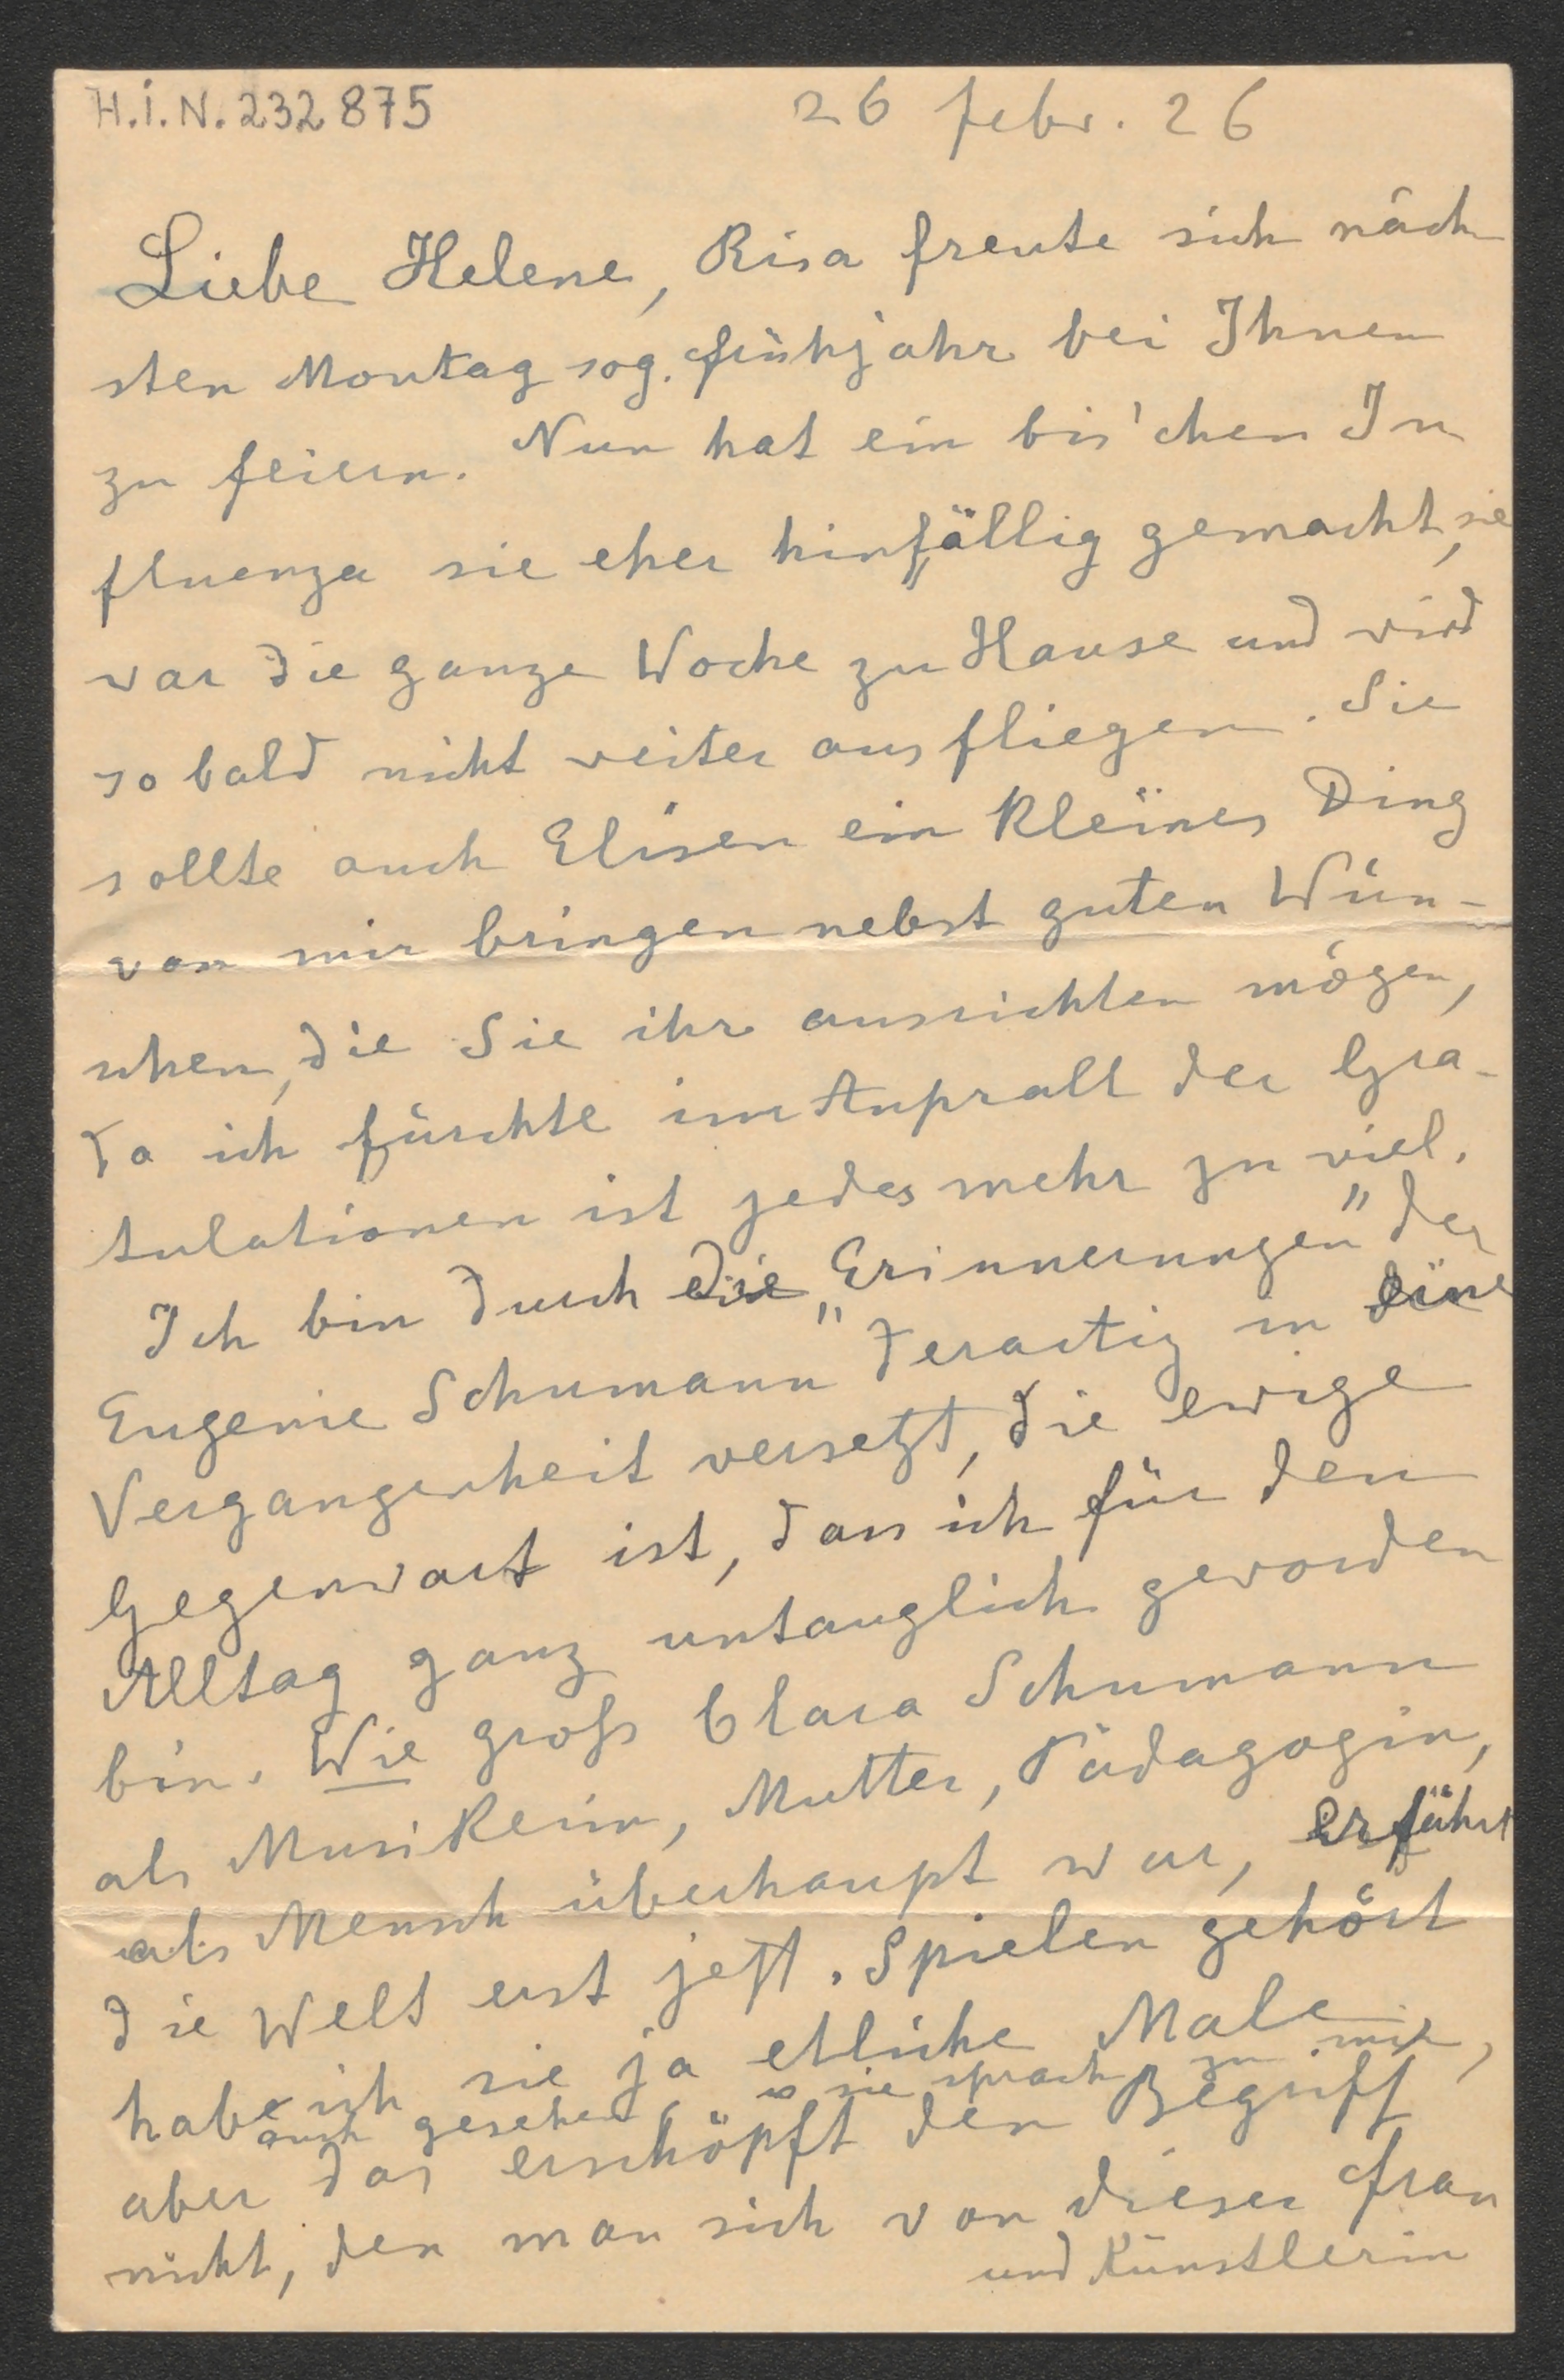 H.I.N. 232875
26 Febr. 26
Liebe Helene, Risa freute sich näch
sten Montag sog. Frühjahr bei Ihnen
zu feiern. Nun hat ein bis'chen In
fluenza sie eher hinfällig gemacht, sie
war die ganze Woche zu Hause und wird
so bald nicht weiter ausfliegen. Sie
sollte auch Elisen ein kleines Ding
von mir bringen nebst guten Wün-
schen, die Sie ihr ausrichten mögen,
da ich fürchte im Anprall der Gra-
tulationen ist jedes mehr zu viel.
Ich bin durch die „Erinnerungen" der
Eugenie Schumann" derartig in eine
Vergangenheit versetzt, die ewige
Gegenwart ist, dass ich für den
Alltag ganz untauglich geworden
bin. Wie groß Clara Schumann
als Musikerin, Mutter, Pädagogin,
als Mensch überhaupt war, erfährt
die Welt erst jetzt. Spielen gehört
habe ich sie ja etliche Male
auch gesehen, sie sprach zu mir,
aber das erschöpft den Begriff
nicht, den man sich von dieser Frau
und Künstlerin